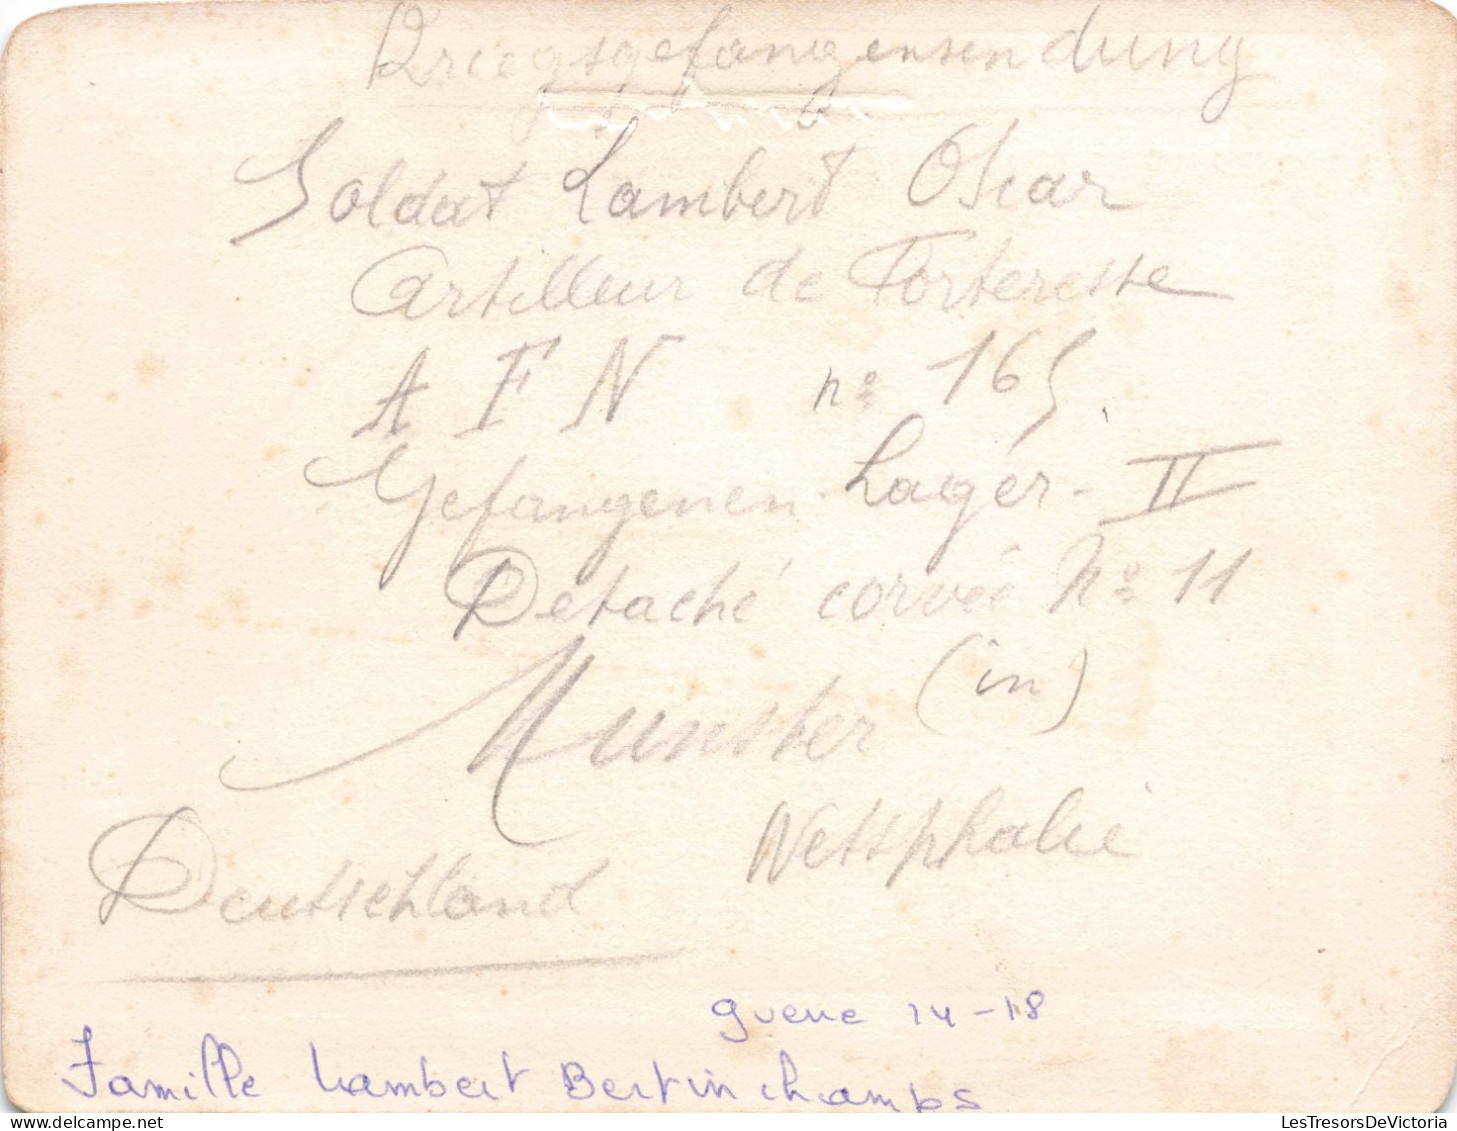 Kriegsgefangensendung
Soldat Lambert Oscar
Artilleur de Forteresse
A F N nº 165
Gefangenen Lager - II
Detaché corvée Nº 11
Munster (in)
Westphalie
Deutschland
guerre 14-18
Famille Lambert Bertinchamps
LesTresorsDeVictoria